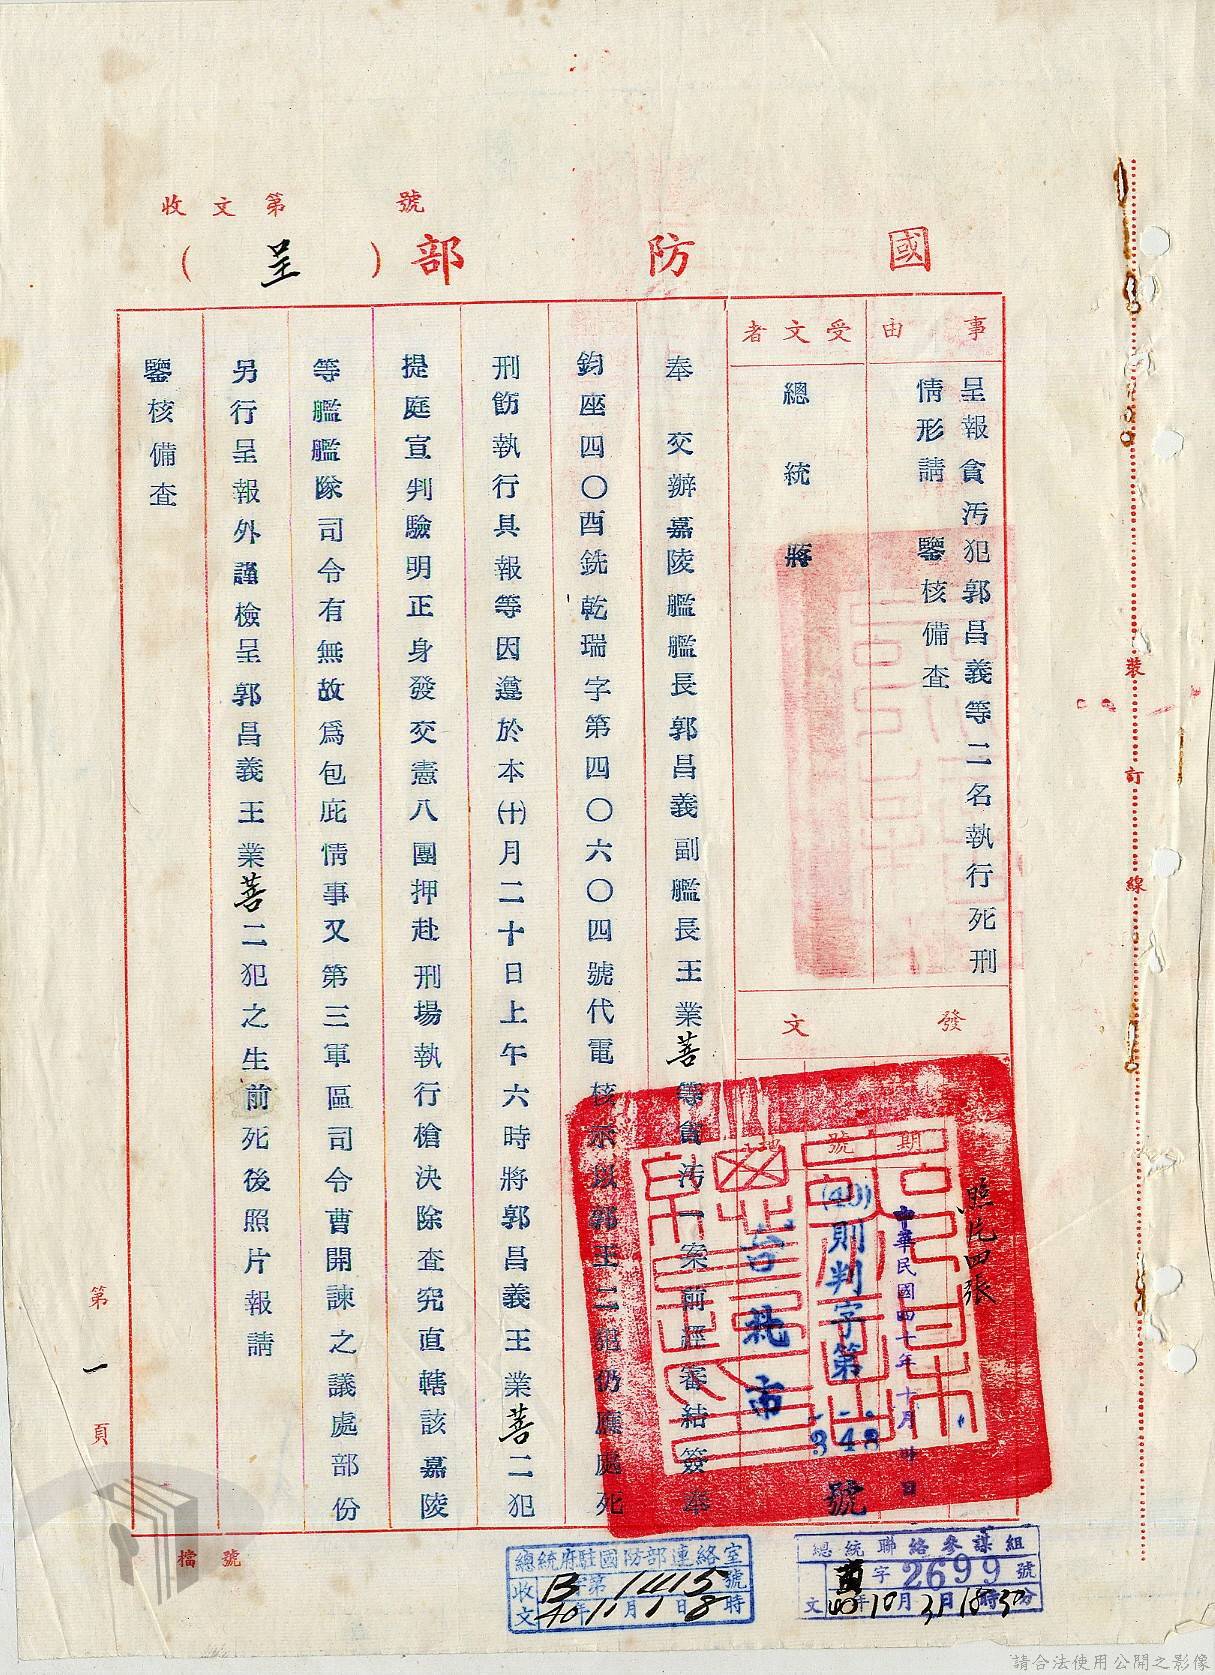 收文第　號
國防部（呈）
事由
呈報貪污犯郭昌義等二名執行死刑
情形請　鑒核備查
受文者
總統　蔣
發文
期
號
地
照片四張
中華民國四十年十月卅日
(40)則判字第348號
台北市
奉　交辦嘉陵艦艦長郭昌義副艦長王業菩等貪污一案前經審結簽奉
鈞座四〇酉銑乾瑞字第四〇六〇四號代電核示以郭王二犯仍應處死
刑飭執行具報等因遵於本㈩月二十日上午六時將郭昌義王業菩二犯
提庭宣判驗明正身發交憲八團押赴刑場執行槍決除查究直轄該嘉陵
等艦艦隊司令有無故為包庇情事又第三軍區司令曹開諫之議處部份
另行呈報外謹檢呈郭昌義王業菩二犯之生前死後照片報請
鑒核備查
裝訂線
第一頁
檔號
總統府駐國防部連絡室
收文　第1415號
40年11月1日8時
總統聯絡參謀組
字2699號
文40年10月31日18時30分
請合法使用公開之影像